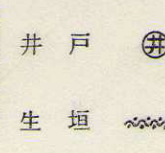 井戸
生垣